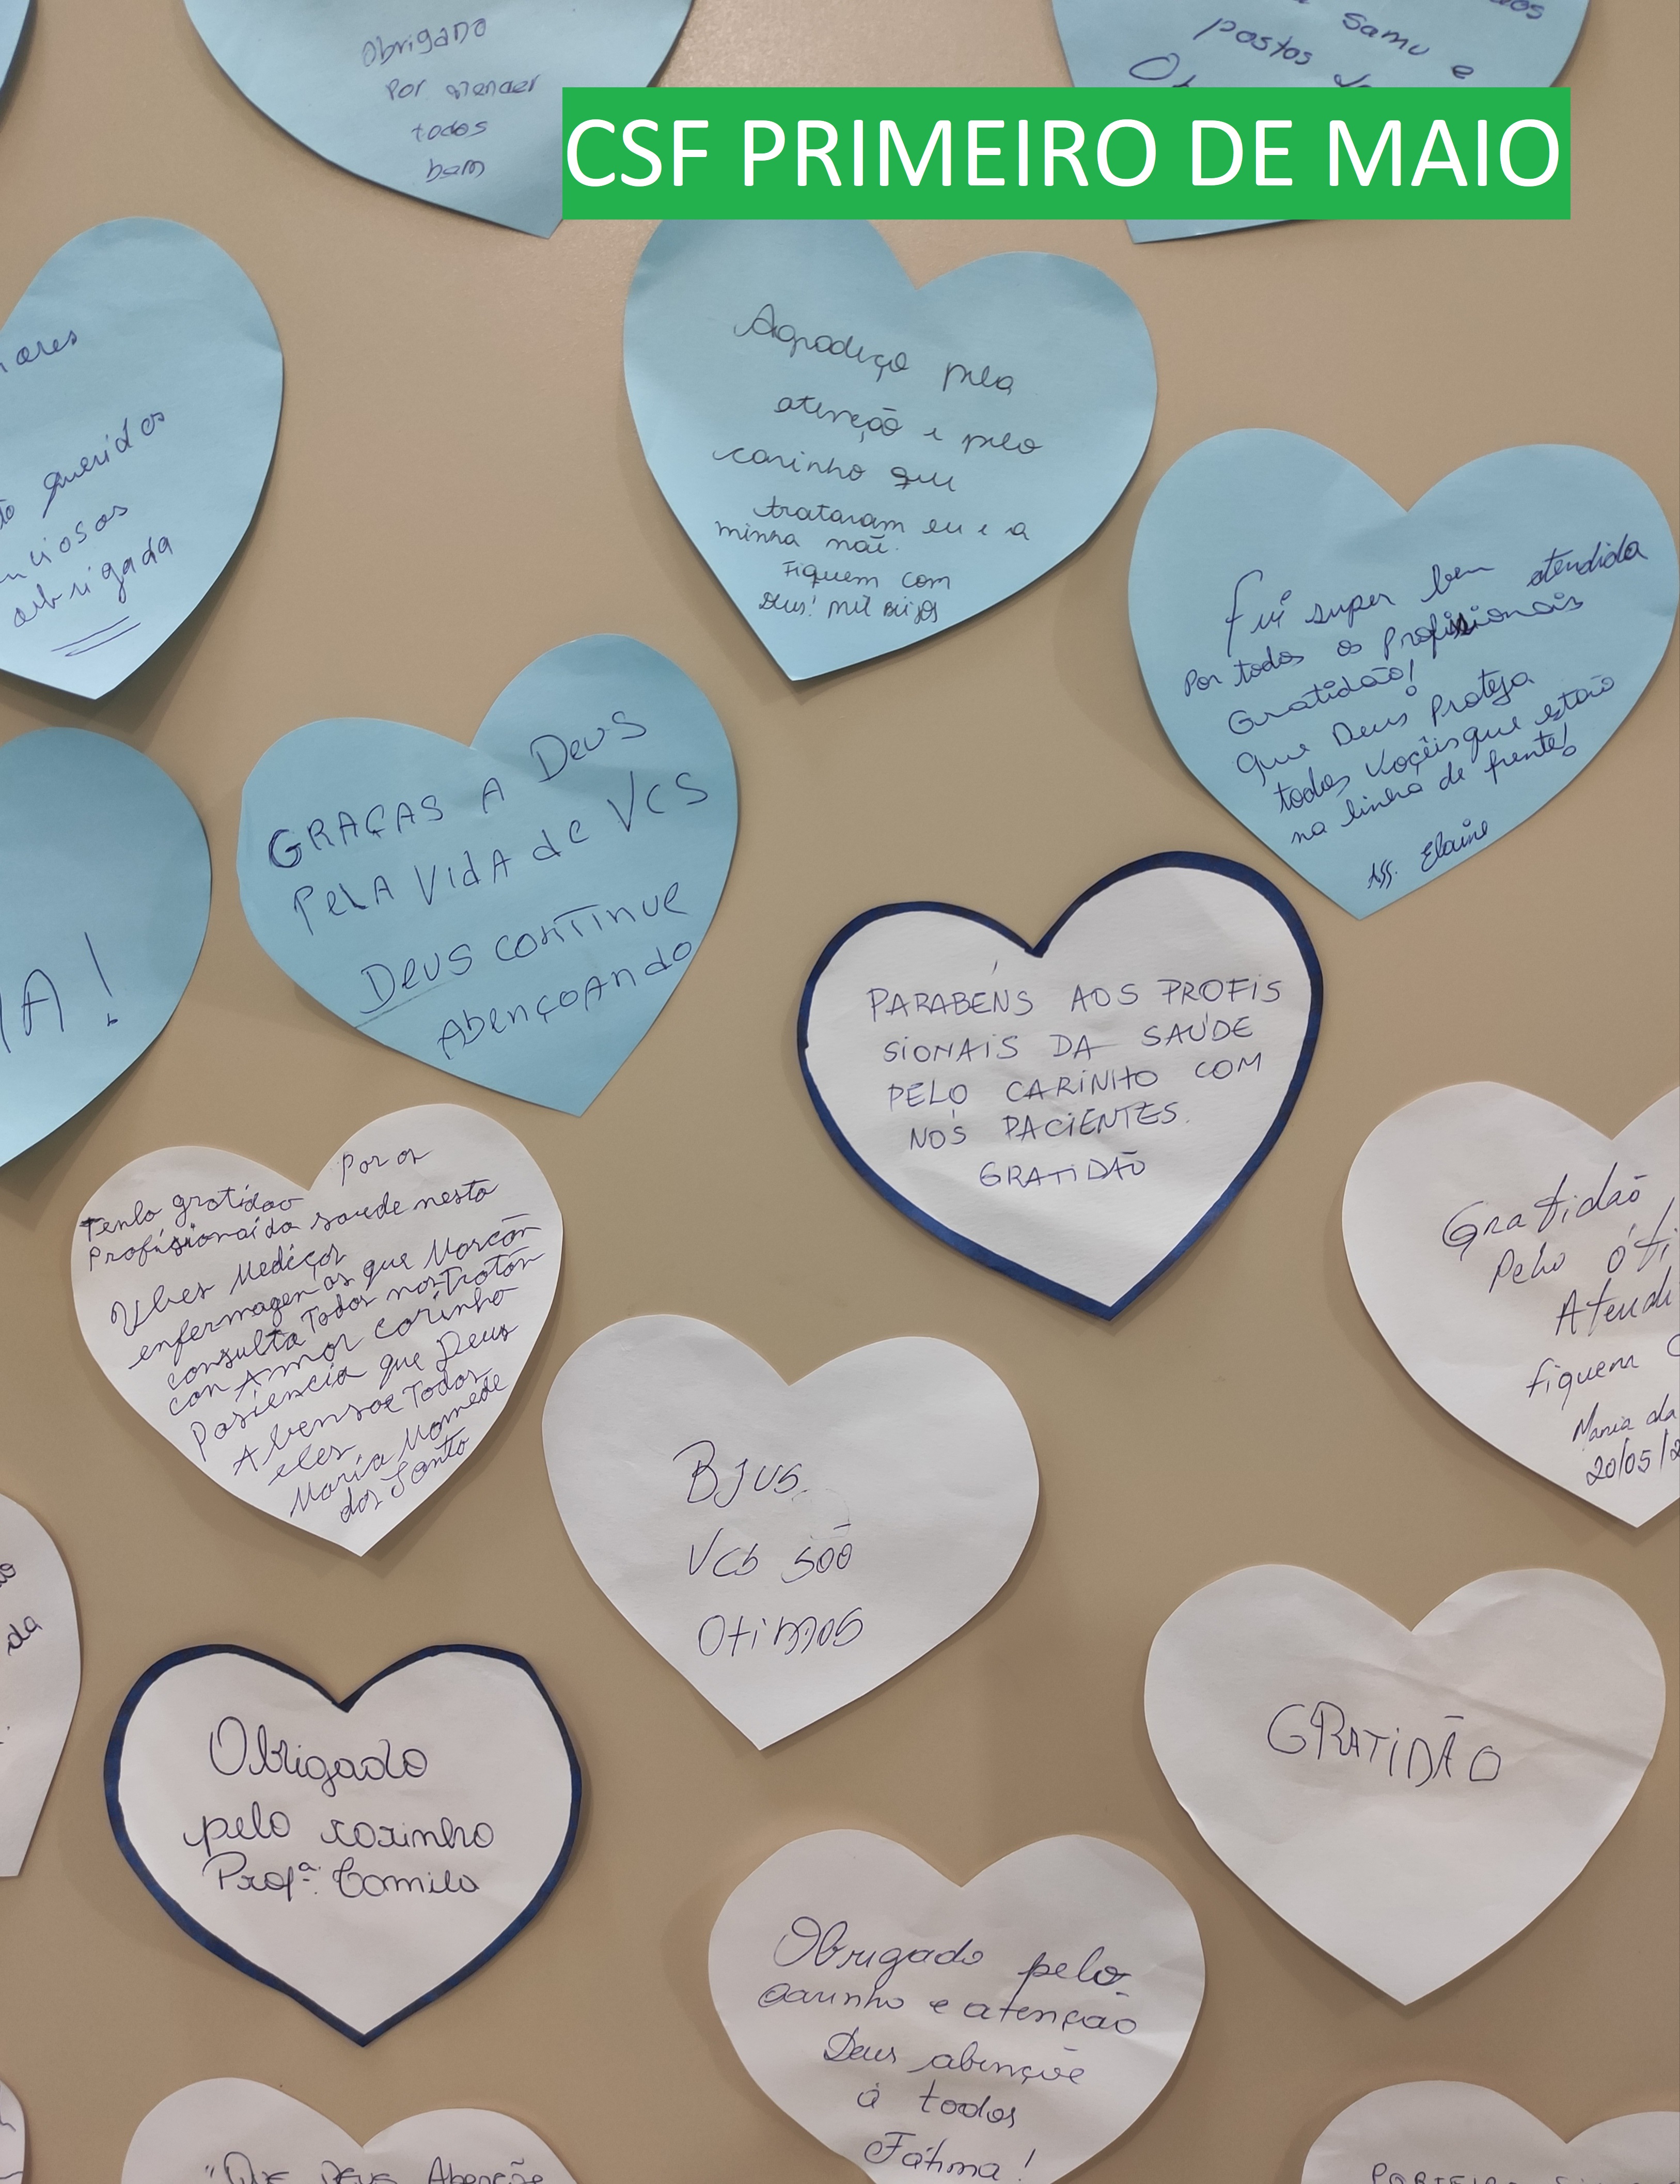 Obrigado
Por atender
todos
bem
samu e
postos
CSF PRIMEIRO DE MAIO
ares
queridos
obrigada
Agradeço pela
atenção e pelo
carinho que
trataram eu e a
minha mãe.
Fiquem com
Deus! Mil Beijos
Fui super bem atendida
Por todos os Profissionais
Gratidão!
Que Deus Proteja
todos voçêis que estão
na linha de frente!
Ass. Elaine
GRAÇAS A Deus
PELA VidA de VCS
Deus continue
AbençoAndo
A!
PARABÉNS AOS PROFIS
SIONAIS DA SAÚDE
PELO CARINHO COM
NÓS PACIENTES.
GRATIDÃO
Tenho gratidao Por os
Profisionaida saude nesta
Ubes Mediços
enfermagen os que Marcan
consulta Todos nos Tratan
con Amor carinho
Pasiencia que Deus
Abensoe Todos
eles
Maria Momede
dos Santo
Gratidão
Pelo
Atendi
fiquem
Maria da
20/05/2
BJUS.
Vcs são
Otimos
da
Obrigado
pelo carinho
Profª. Camila
GRATIDÃO
Obrigado pelo
Carinho e atenção
Deus abençõe
á todos
Fátima!
"Que Deus Abençõe